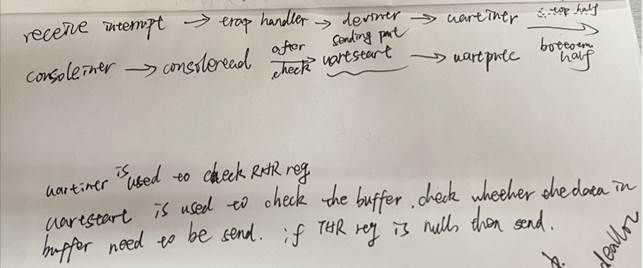 receive interrupt → trap handler → devintr → uartintr top half →
consoleintr → consoleread after check → sending part uartstart → uartputc bottom half
uartintr is used to check RHR reg
uartstart is used to check the buffer, check whether the data in
buffer need to be send. if THR reg is null, then send.